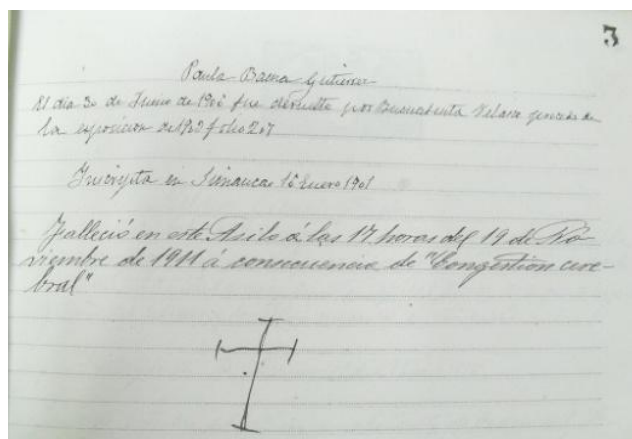 3
Paula Baena Gutierrez
El dia 30 de Junio de 190 fue devuelta por Buenabentu Velasco
la exposicion de 1902 folio 207
Inscripta en Simancas 16 Enero 1901
Falleció en este Asilo á las 17 horas del 19 de No
viembre de 1911 á consecuencia de "Congestion cere-
bral"